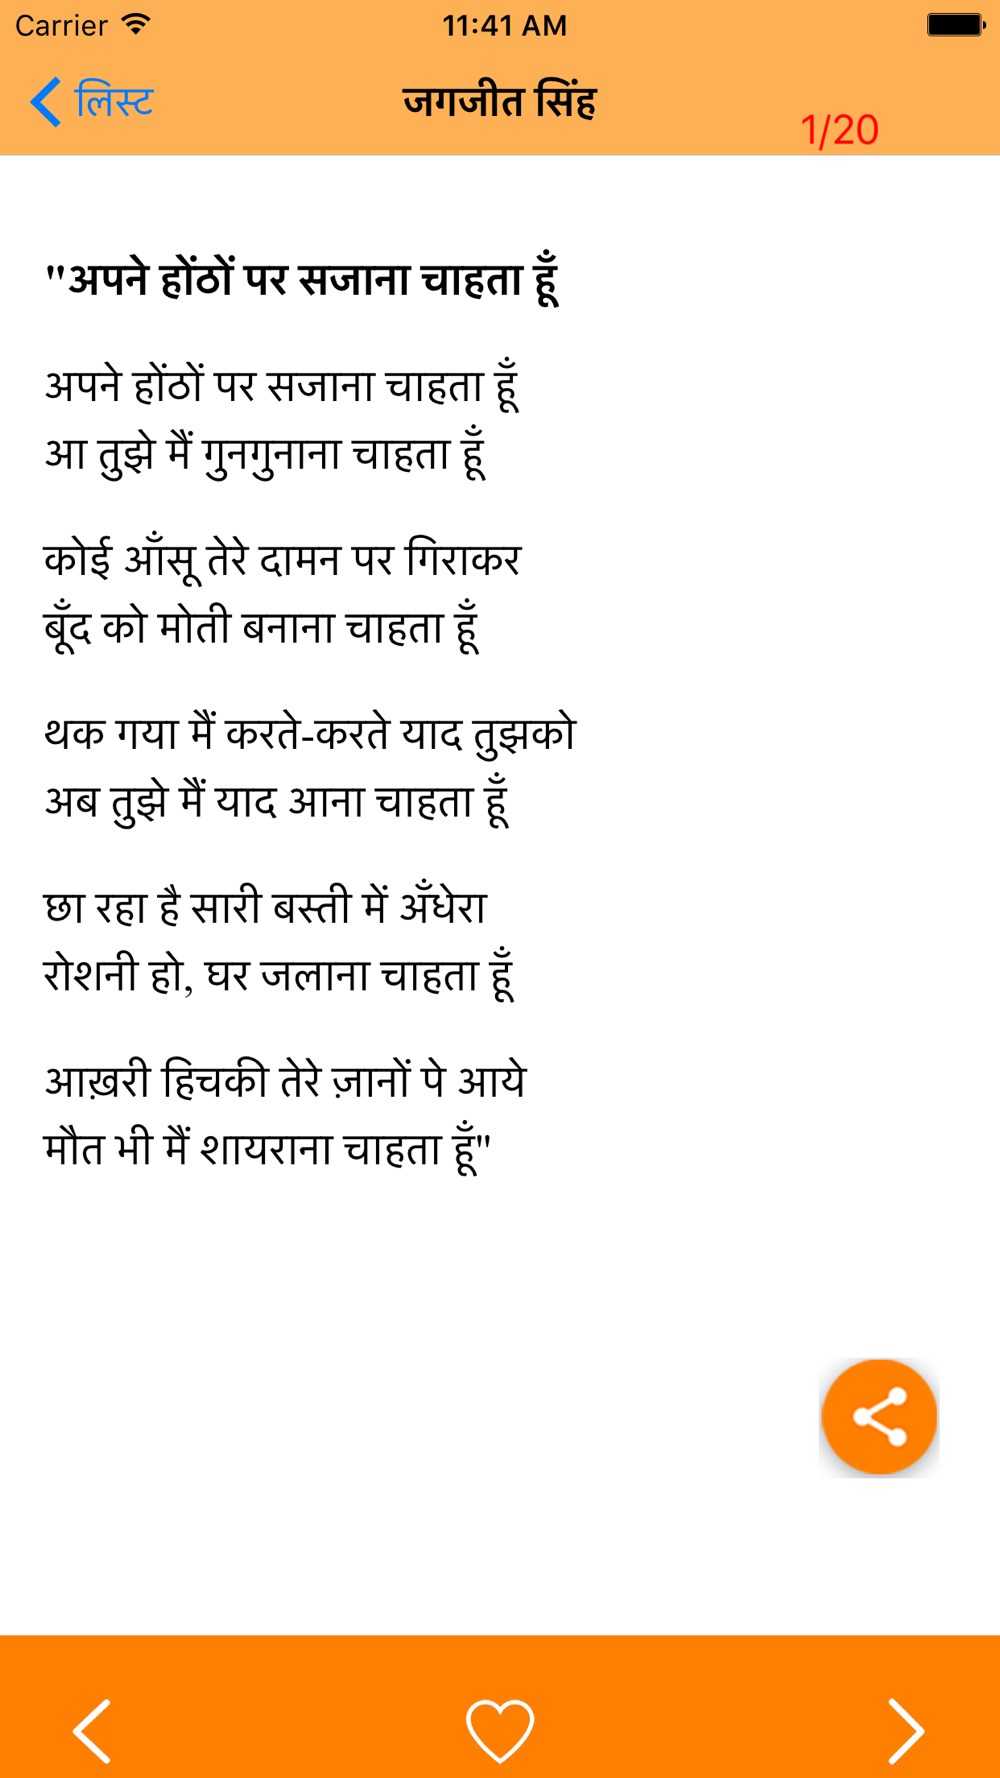 Carrier 11:41 AM
लिस्ट जगजीत सिंह 1/20
"अपने होंठों पर सजाना चाहता हूँ
अपने होंठों पर सजाना चाहता हूँ
आ तुझे मैं गुनगुनाना चाहता हूँ
कोई आँसू तेरे दामन पर गिराकर
बूँद को मोती बनाना चाहता हूँ
थक गया मैं करते-करते याद तुझको
अब तुझे मैं याद आना चाहता हूँ
छा रहा है सारी बस्ती में अँधेरा
रोशनी हो, घर जलाना चाहता हूँ
आख़री हिचकी तेरे ज़ानों पे आये
मौत भी मैं शायराना चाहता हूँ"